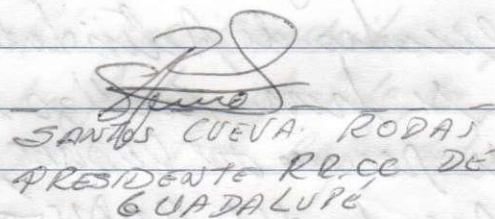 SANTOS CUEVA RODAS
PRESIDENTE RR.CC DE
GUADALUPE